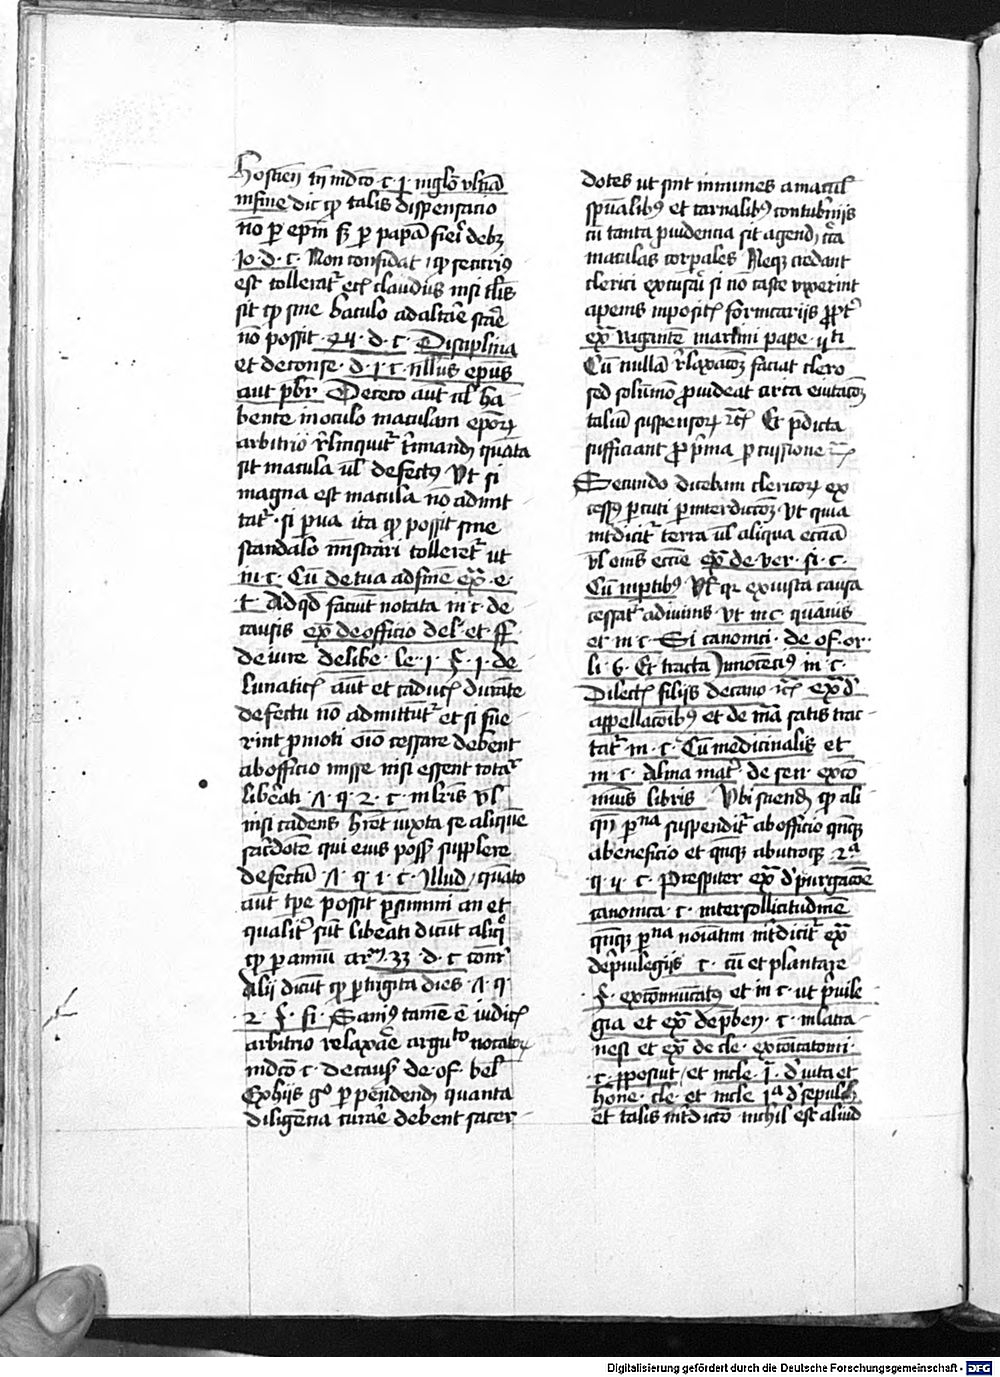 Hostien in mdco c. i in glo. vltia
in fine dic qp talis dispensacio
no per epm sz per papa fieri debz
10 . d . c . Non confidat / qp securius
est tollerat ecl claudus nisi
sit qp sine baculo ad altare stare
no possit d . c . Disciplina
et deconse . d . i c . nllus epus
aut pbr Detecto aut ul ha-
bente in oculo maculam eporz
arbitrio rlinquit rimand quata
sit macula ul defectus Vt si
magna est macula no admit
tat . si pua ita qp possit sine
scandalo mistrari tolleret ut
in c . Cu de tua ad fine ex . e .
t Ad qd faciut notata in c . de
causis ex de officio del . et ff
de iure delibe . le . i . § . i . de
Lunatic aut et caduc durate
defectu no admittut et si fue-
rint pmoti oio cessare debent
ab officio misse nisi essent tota
liberati . q . 2 . c . in lris vl
nisi cadens hret iuxta se alique
sacdote qui eius poss supplere
defectu . q . i . c . Illud / quato
aut tpe possit psumi an et
qualit sut liberati dicut aliq
qp per annu ar 33 . d . c
Alij dicut qp per triginta dies . q .
2 . § . si . Sanius tamen e iudic
arbitrio relaxare
mdco c . de caus de of . del
Ex hijs go perpendend quanta
diligencia curare debent sacer-
dotes ut sint inmunes a macul
spualibus et carnalibus contubnijs
cu tanta puidencia sit agend cca
maculas corpales Neqz credant
clerici excusari si no caste vixerint
a penis inpositis fornicarijs
exa martini pape
Cu nulla rlaxacoz faciat clero
sed solumo puideat circa euitacoz
taliu suspensorz Et pdicta
sufficiant pro pma percussione
Secundo dicebam clericorz ex
cessus percuti per interdictoz Vt quia
intdicit terra ul aliqua eccia
vl omis eccie exa de ver . si . c .
Cu in ptibus Vl qr ex iusta causa
cessat a diuinis Vt in c . quauis
et in c . Si canonici . de of . or .
li . 6 . Et tracta Innocecius in c .
Dilectis filijs decano exa d
appellacoibus et de ma satis trac-
tat in c . Cu medicinalis et
in c . Alma mat . de sen . exco
libris Vbi sciend qp ali
qn pna suspendit ab officio qnqz
a beneficio et qnqz ab utroqz 2a
. q . ij . c . Prespiter exa d purgacoe
canonica . c . inter sollicitudine
qnqz pna noiatim intdicit exa
de priuilegijs . c . cu et plantare
. § . excomunicatus et in c . ut priuile
gia et exa de pben . c . in latra
nesi et exa de cle . excoicatomi .
. c . et in cle . i . d vita et
hone . cle . et in cle ia d sepulch
et talis intdicto nichil est aliud
Digitalisierung gefördert durch die Deutsche Forschungsgemeinschaft - DFG